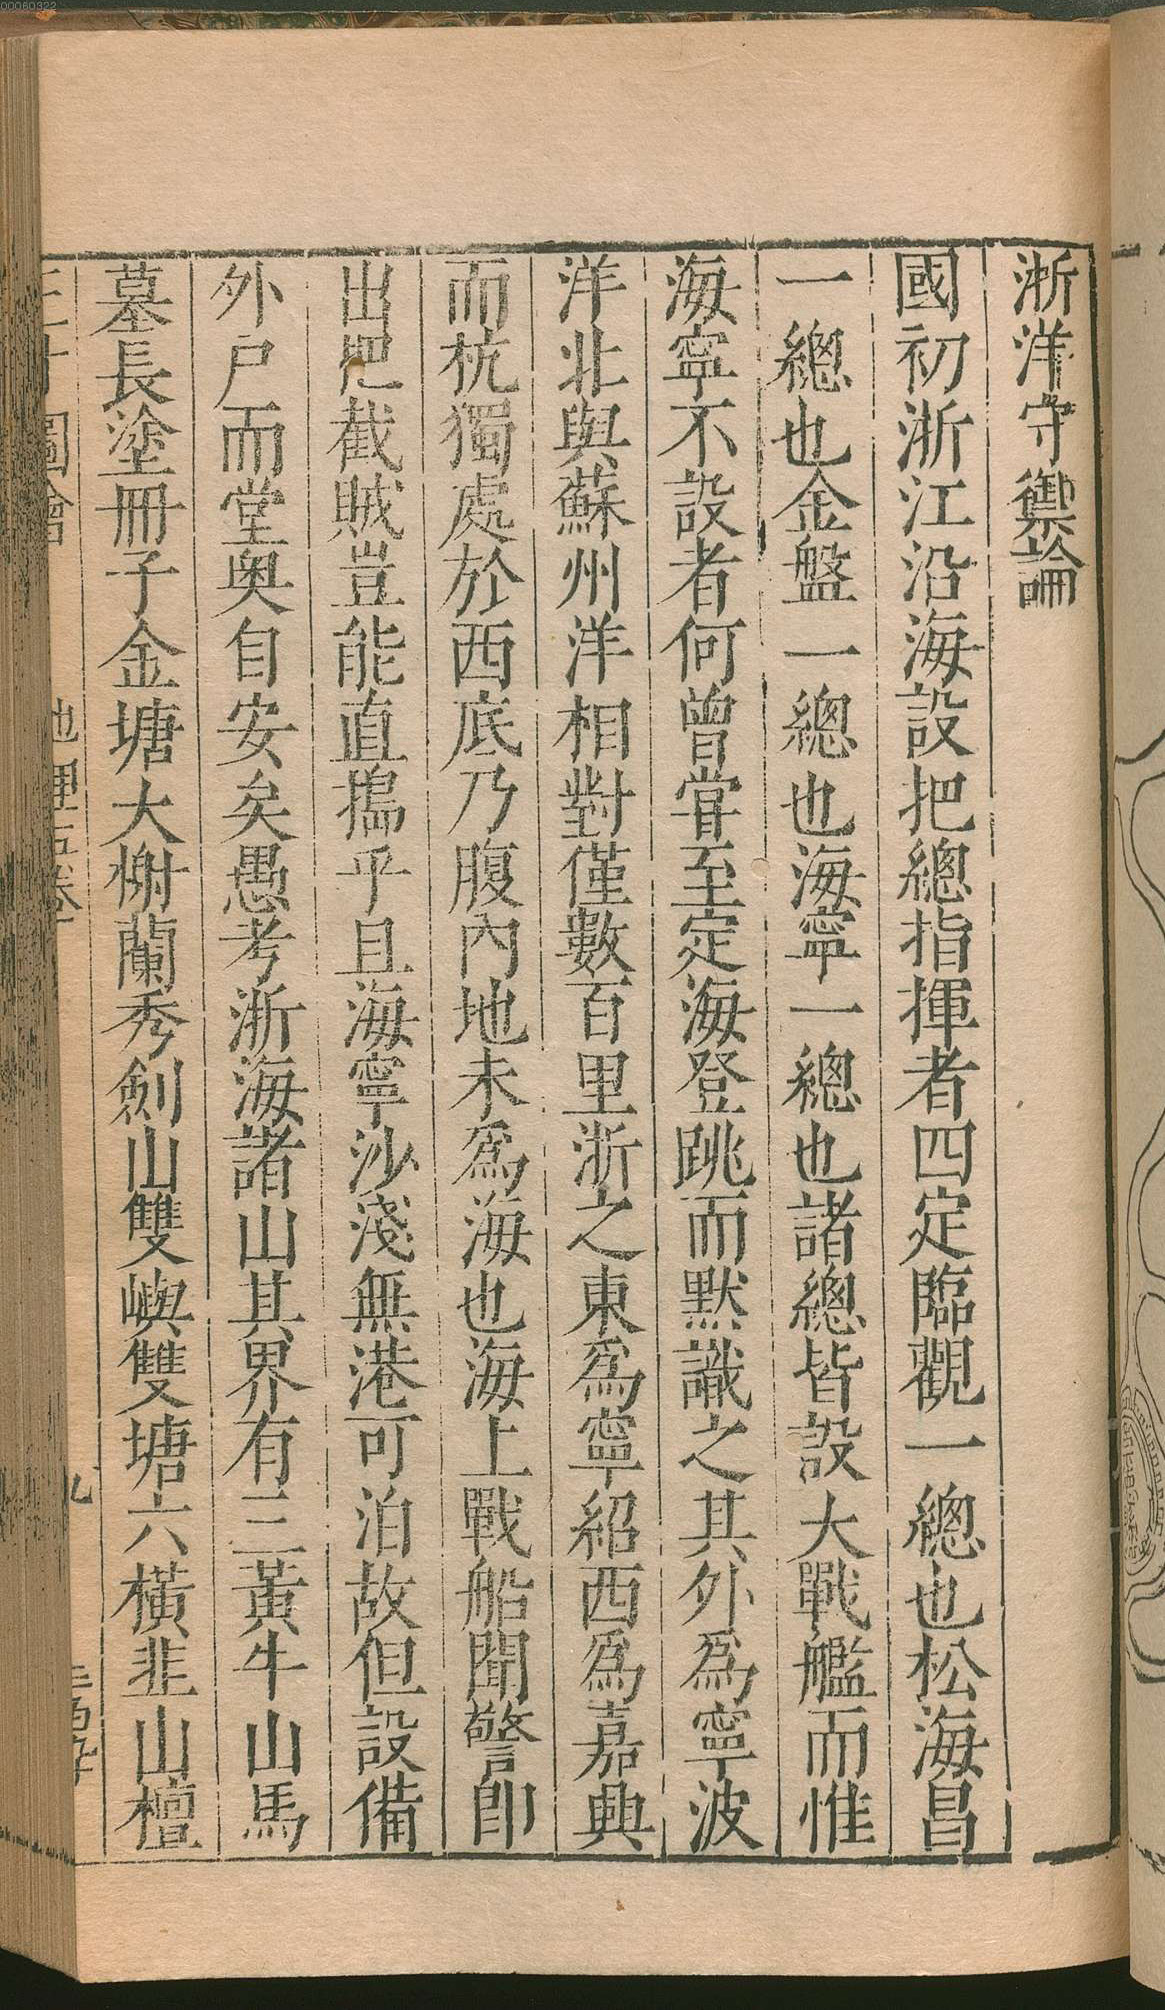 浙洋守禦論
國初浙江沿海設把總指揮者四定臨觀一總也松海昌
一總也金盤一總也海寧一總也諸總皆設大戰艦而惟
海寧不設者何曾嘗至定海登跳而默識之其外爲寧波
洋北與蘇州洋相對僅數百里浙之東爲寧紹西爲嘉興
而杭獨處於西底乃腹內地未爲海也海上戰船聞警即
出洋截賊豈能直搗乎且海寧沙淺無港可泊故但設備
外戶而堂奥自安矣愚考浙海諸山其界有三黃牛山馬
墓長塗冊子金塘大榭蘭秀劍山雙嶼雙塘六橫韭山檀
三才圖會
地理五卷
九
00060322